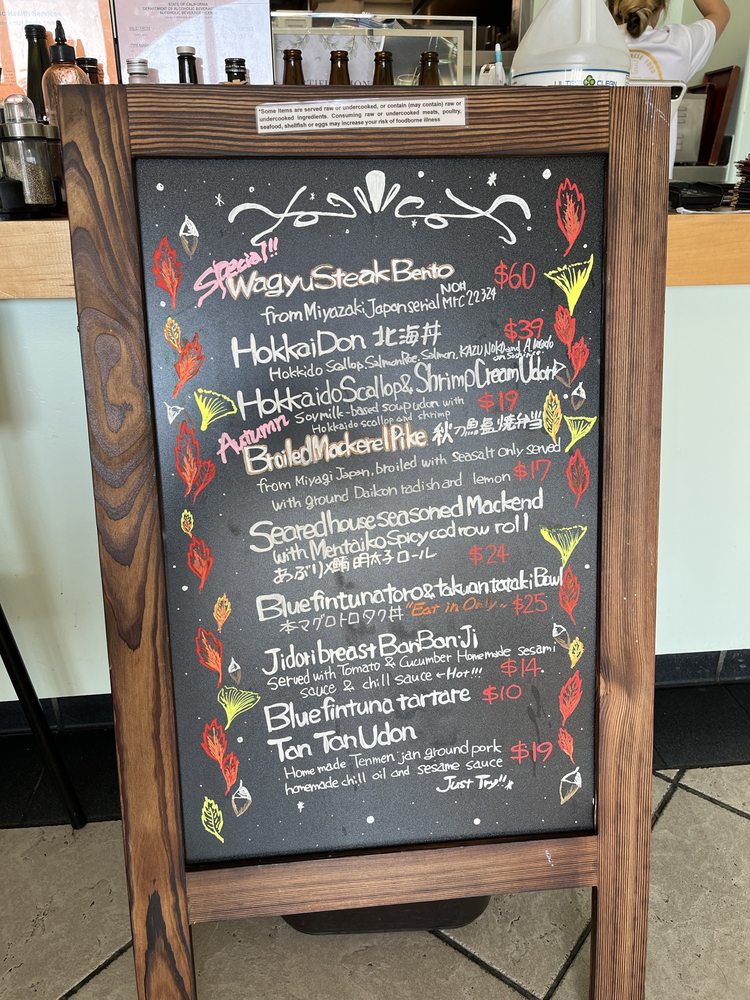 STATE OF CALIFORNIA
DEPARTMENT OF ALCOHOLIC BEVERAGE CONTROL
*Some items are served raw or undercooked, or contain (may contain) raw or
undercooked ingredients. Consuming raw or undercooked meats, poultry,
seafood, shellfish or eggs may increase your risk of foodborne illness
Special!!
Wagyu Steak Bento $60
from Miyazaki Japan serial NOH MTC 22324
HokkaiDon 北海丼 $39
Hokkido Scallop, Salmon Roe, Salmon, KAZUNOKO and
Hokkaido Scallop & Shrimp Cream Udon
Soymilk-based soup udon with $19
Hokkaido scallop and shrimp
Autumn
Broiled Mackerel Pike 秋刀魚塩焼弁当
from Miyagi Japan, broiled with seasalt only served
with ground Daikon radish and lemon $17
Seared house seasoned Mackend
with Mentaiko Spicy cod row roll
あぶり〆鯖明太子ロール $24
Bluefin tuna toro & takuan tataki Bowl
本マグロトロタク丼 "Eat in Only" $25
Jidori breast BanBanJi
Served with Tomato & Cucumber Homemade sesami
sauce & chill sauce ←Hot!!! $14.
Bluefin tuna tartare $10
Tan Tan Udon
Home made Tenmen jan ground pork $19
homemade chill oil and sesame sauce
Just Try!!